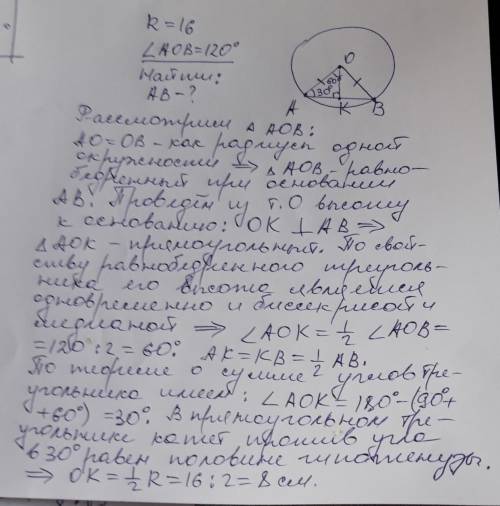 R=16
∠AOB=120°
Найти:
AB-?
O
60°
30°
A
K
B
Рассмотрим △ AOB:
AO=OB - как радиусы одной
окружности ⇒ △AOB - равно-
бедренный при основании
AB. Проведём из т.O высоту
к основанию: OK ⊥ AB ⇒
△AOK - прямоугольный. По свой-
ству равнобедренного треуголь-
ника его высота является
одновременно и биссектрисой и
медианой ⇒ ∠AOK = 1/2 ∠AOB =
=120°:2=60°. AK=KB=1/2 AB.
По теореме о сумме углов тре-
угольника имеем: ∠AOK=180°-(90°+
+60°)=30°. В прямоугольном тре-
угольнике катет против угла
в 30° равен половине гипотенузы.
⇒ OK=1/2 R=16:2=8 см.